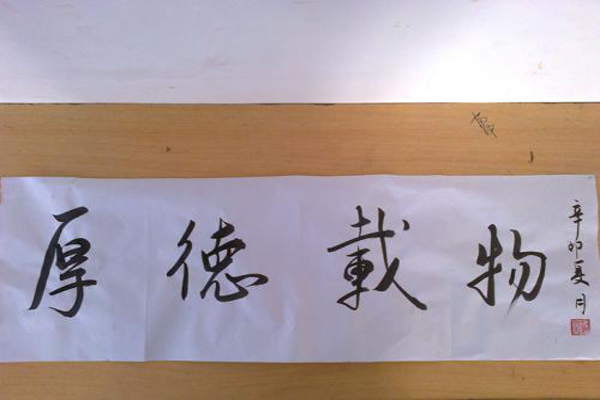 厚德載物
辛卯夏月